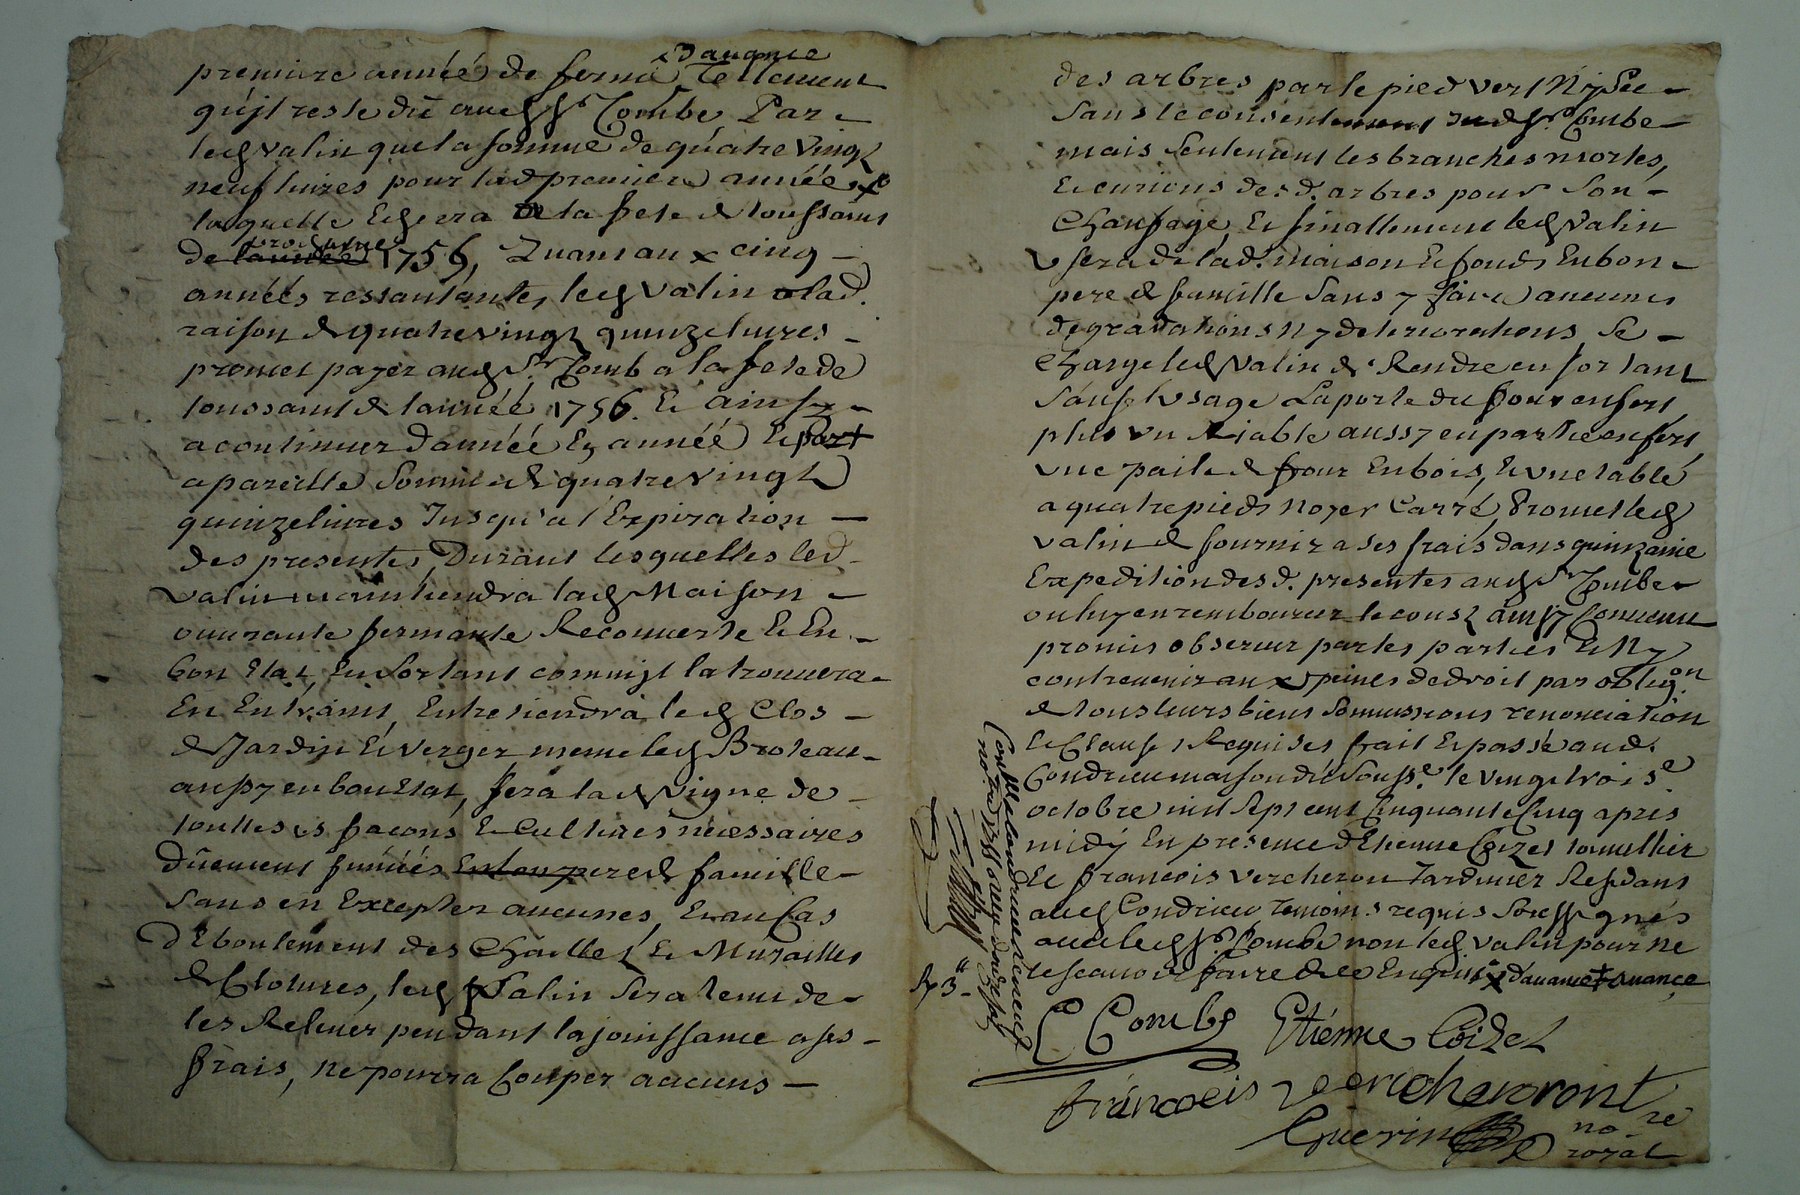 d'avance
premiere année de ferme Tellement
qu'jl reste dû aud Sr. Combe Par
led Valin que la somme de quatre vingt
neuf livres pour lad premiere année
laquelle Echera a la fete de toussaint
prochaine
de l'année 1756, Quant aux cinq
années restantes, led Valin a lad.
raison de quatre vingt quinze livres
promet payer aud Sr Comb a la fete de
toussaint de l'année 1756. Et ainsy
a continuer d'année En année Et
a pareille somme de quatre vingt
quinze livres Jusqu'a l'Expiration
des presentes, Durant lesquelles led
Valin maintiendra lad Maison
ouvrante fermante Recouverte Et En
bon Etat, En sortant comm'jl la trouvera
En Entrant, Entretiendra led Clos
de Jardin Et Verger meme led Broteau
aussy en bon Etat, fera lad Vigne de
touttes ses façons Et Cultures necessaires
dûement fumées En bon pere de famille
sans en Excepter aucunes, En cas
d'Eboulement des Et Murailles
de Clotures, led Valin sera tenu de
les Relever pendant la jouissance a ses
frais, Ne pourra Couper aucuns
des arbres par le pied vert Ny sec
sans le consentement dud Sr. Combe
mais seulement les branches mortes,
Et des d. arbres pour son
Chaufage, Et finallement led Valin
Usera de lad. maison Et fonds En bon
pere de famille sans y faire aucunes
degradations Ny deteriorations Se
Charge led Valin de Rendre en sortant
sauf l'usage La porte du four en fert,
plus un Riable aussy en partie en fert
une paile de four En bois, Et une table
a quatre pieds Noyer Carré, Promet led
Valin de fournir a ses frais dans quinzaine
Expedition des d. presentes aud Sr Combe
ou luy en rembourcer le coust ainsy Convenu
promis observer par les parties Et Ny
contrevenir aux peines de droit par oblig.on
de tous leurs biens soumissions renonciation
Et Clauses Requises fait Et passé aud.
Condrieu maison de Souss.e le vingt trois e
octobre mil sept cent Cinquante Cinq apres
midy En presence d'Etienne Coizet tonnellier
Et francois Vercheron Jardinier Residans
aud Condrieu Temoins requis soussignés
avec led Sr. Combe non led Valin pour ne
le scavoir faire de ce Enquis x d'avance + avance
C Combe Etienne Coizet
françois vercheront
Guerin no re
royal